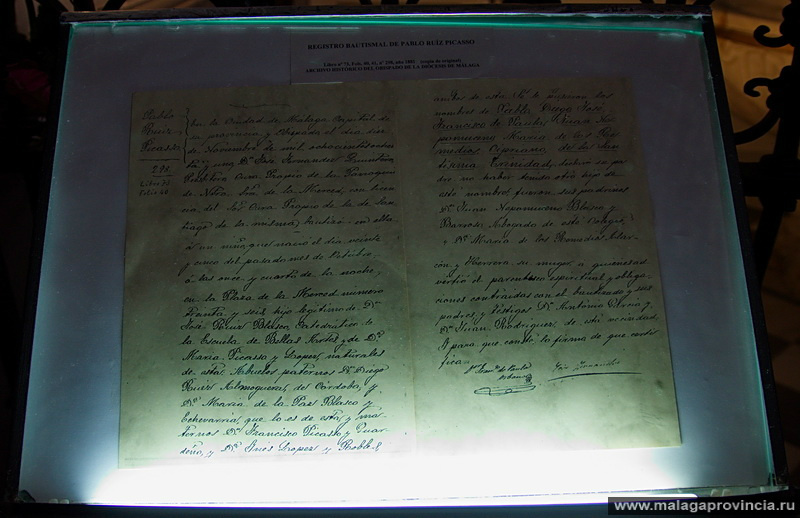 REGISTRO BAUTISMAL DE PABLO RUÍZ PICASSO
ARCHIVO HISTÓRICO DEL OBISPADO DE LA DIÓCESIS DE MÁLAGA
Pablo
Ruiz
Picasso
En la Ciudad de Málaga, Capital de
su provincia y Obispado, el dia diez
de Noviembre de mil ochocientos ochen-
ta y uno, Dn. José Fernandez
Cura Propio de la Parroquia
de Ntra. Sra. de la Merced, con licen-
cia del Sor. Cura Propio de la de San-
tiago de la misma, bautizó en ella
á un niño, que nació el dia veinte
y cinco del pasado mes de Octubre
á las once y cuarto de la noche,
en la Plaza de la Merced número
treinta y seis, hijo legítimo de Dn.
José Ruiz Blasco, Catedrático de
la Escuela de Bellas Artes, y de Da.
María Picasso y Lopez, naturales
de esta. Abuelos paternos Dn. Diego
Ruiz Almoguera, de Córdoba, y
Da. María de la Paz Blasco y
Echevarria, que lo es de esta, y ma-
ternos Dn. Francisco Picasso y Guar-
deño, y Da. Inés Lopez y Robles,
ambos de esta. Se le pusieron los
nombres de Pablo, Diego, José,
Francisco de Paula, Juan Ne-
pomuceno, María de los Re-
medios, Cipriano de la San-
tísima Trinidad,
no haber tenido otro hijo de
este nombre, fueron sus padrinos
Dn. Juan Nepomuceno Blasco y
Barroso, Abogado de este Colegio,
y Da. María de los Remedios Alar-
cón y Herrera, su mujer, á quienes ad-
vertí el parentesco espiritual y obliga-
ciones contraidas con el bautizado y sus
padres, y testigos Dn. Antonio
Dn. Juan Rodriguez, de esta vecindad.
Y para que conste la firma de que certi-
fica.
www.malagaprovincia.ru